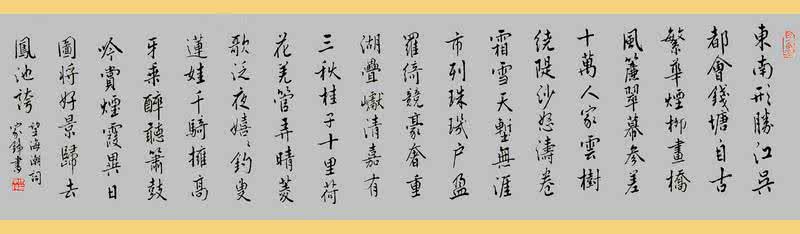 東南形勝江吳
都會錢塘自古
繁華煙柳畫橋
風簾翠幕參差
十萬人家雲樹
繞隄沙怒濤卷
霜雪天塹無涯
市列珠璣户盈
羅綺競豪奢重
湖疊巘清嘉有
三秋桂子十里荷
花羌管弄晴菱
歌泛夜嬉〻釣叟
蓮娃千騎擁高
牙乘醉聽簫鼓
吟賞煙霞異日
圖將好景歸去
鳳池誇
望海潮詞
家錦書